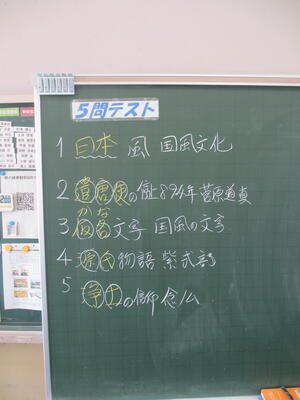 5問テスト
1 日本風 国風文化
2 遣唐使の停止 894年 菅原道真
かな
3 仮名文字 国風の文字
4 源氏物語 紫式部
5 浄土の信仰 念仏